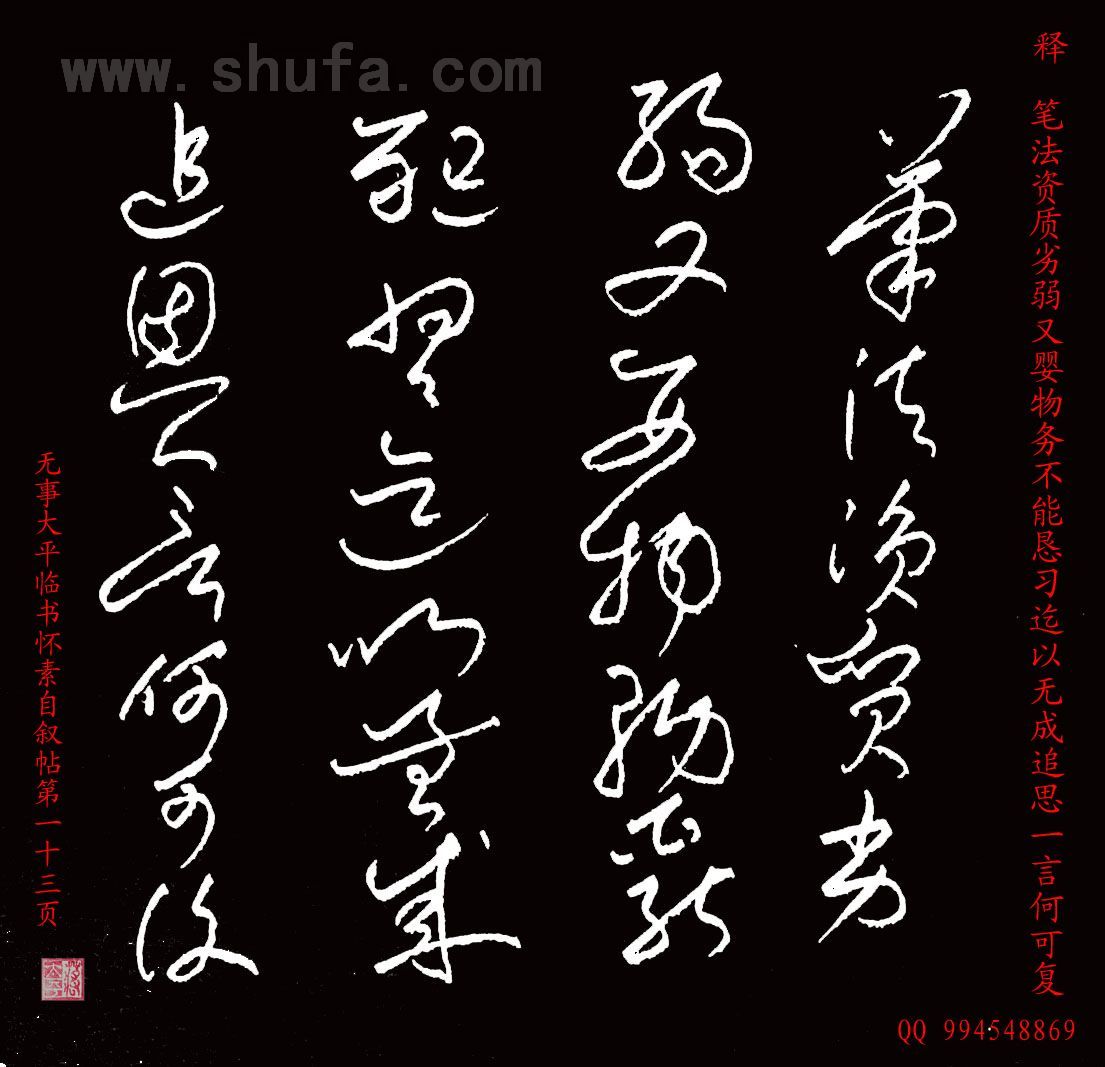 www.shufa.com
释 笔法资质劣弱又婴物务不能恳习迄以无成追思一言何可复
筆法資質劣
弱又嬰物務不能
懇習迄以無成
追思一言何可復
无事大平临书怀素自叙帖第一十三页
QQ 994548869